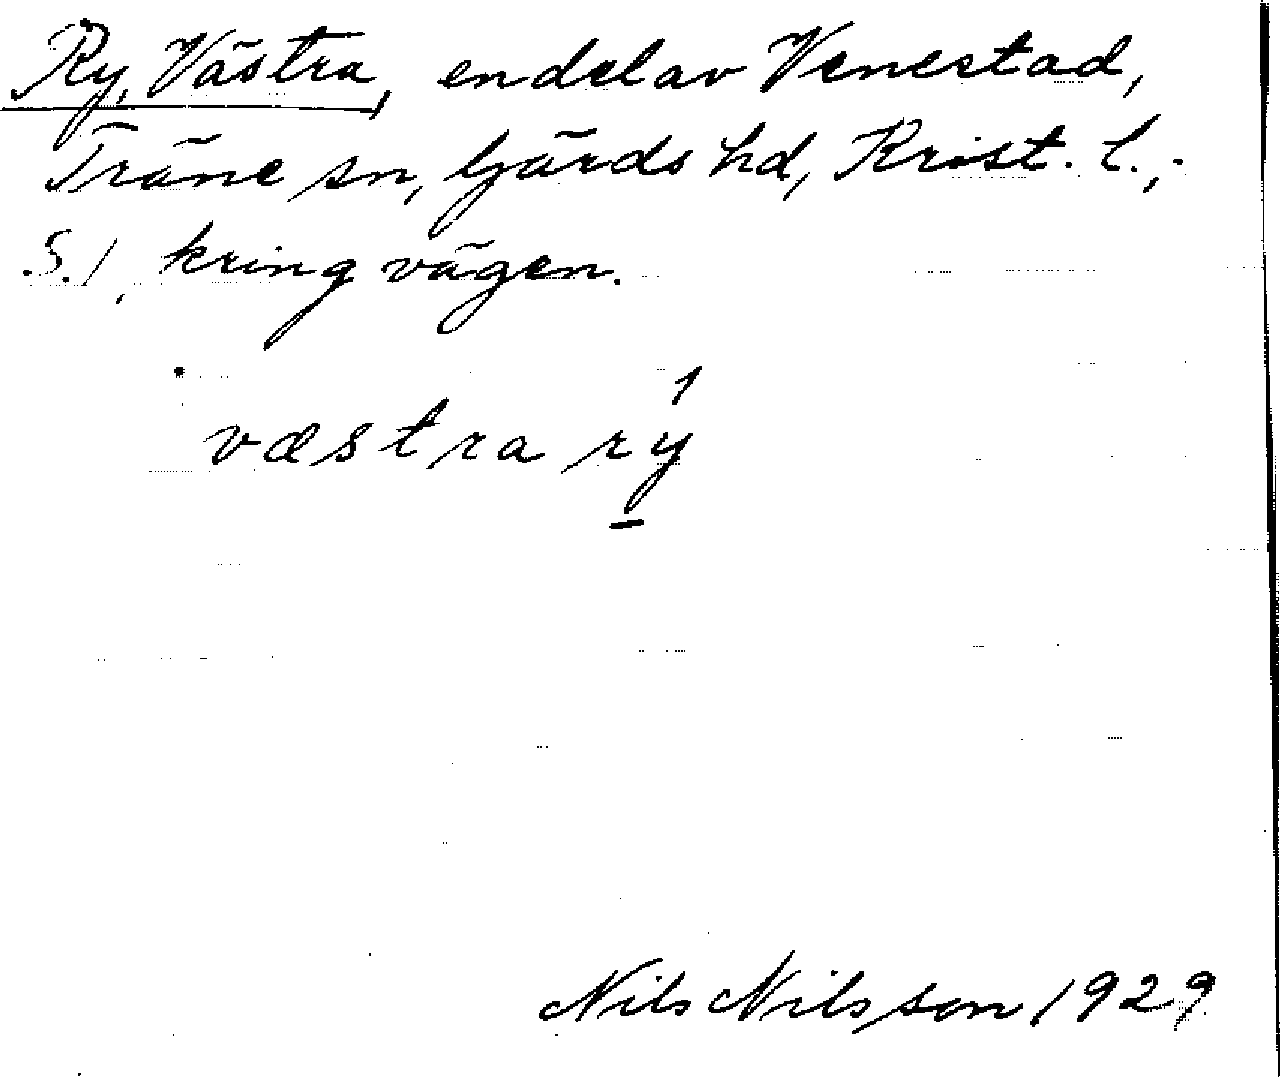 Ry, Västra, en del av Venestad,
Träne sn, Gärds hd, Krist. l.,
S. 1, kring vägen.
væstra rý
Nils Nilsson 1929